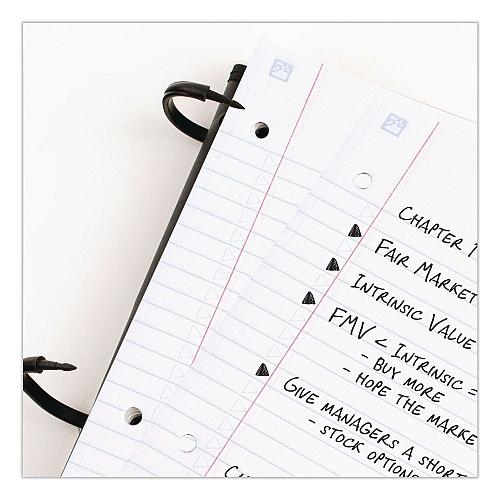 CHAPTER 1
FAIR MARKET
INTRINSIC VALUE
FMV < INTRINSIC =
- BUY MORE
- HOPE THE MARKE
GIVE MANAGERS A SHORT
- STOCK OPTIONS